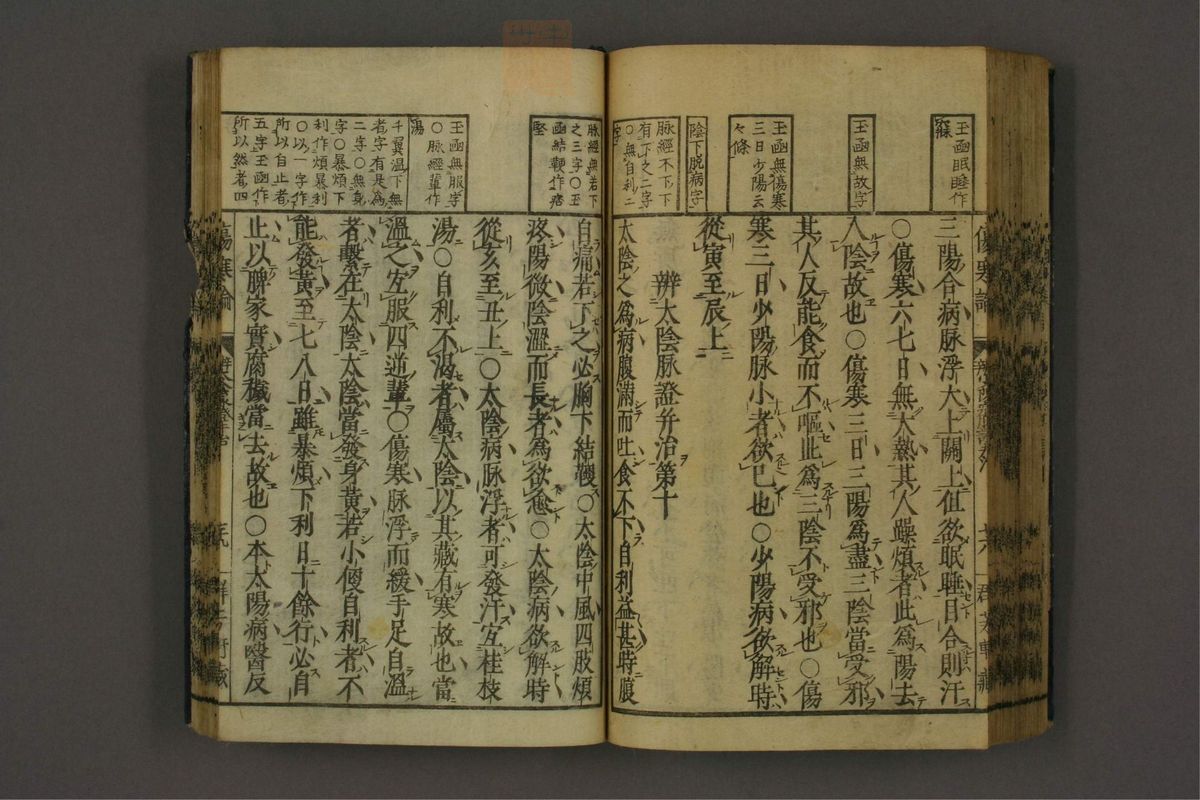 玉函眠睡作
寐
玉函無故字
玉函無傷寒
三日少陽云
々條
陰下脱病字
脉經不下下
有下之二字
○無自利二
字
三陽合病脉浮大上關上但欲眠睡目合則汗
○傷寒六七日無大熱其人躁煩者此爲陽去
入陰故也○傷寒三日三陽爲盡三陰當受邪
其人反能食而不嘔此爲三陰不受邪也○傷
寒三日少陽脉小者欲已也○少陽病欲解時
從寅至辰上
辨太陰脉證并治第十
太陰之爲病腹滿而吐食不下自利益甚時腹
脉經無若下
之三字○玉
函結鞕作痞
堅
玉函無服字
○脉經輩作
湯
千翼溫下無
者字有是爲
二字○無身
字○暴煩下
利作煩暴利
○以一字作
所以自止者
五字玉函作
所以然者四
自痛若下之必胸下結鞕○太陰中風四肢煩
疼陽微陰濇而長者爲欲愈○太陰病欲解時
從亥至丑上○太陰病脉浮者可發汗宜桂枝
湯○自利不渴者屬太陰以其藏有寒故也當
溫之宜服四逆輩○傷寒脉浮而緩手足自溫
者繫在太陰太陰當發身黃若小便自利者不
能發黃至七八日雖暴煩下利日十餘行必自
止以脾家實腐穢當去故也○本太陽病醫反
傷寒論